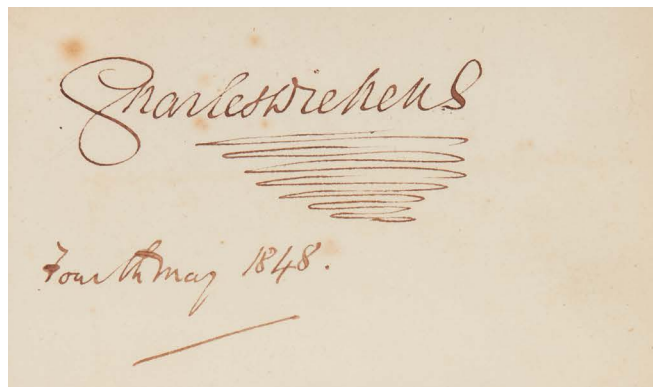 Charles Dickens
Fourth May 1848.